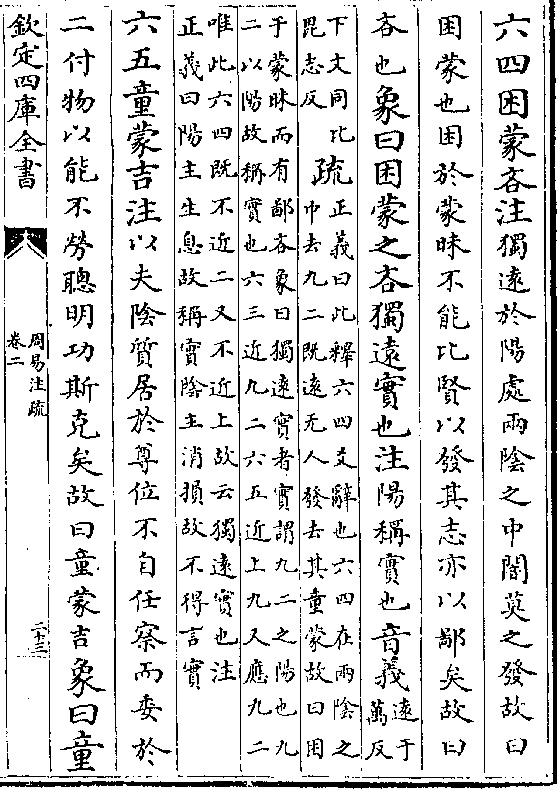 六四困蒙吝注獨遠於陽處兩陰之中闇莫之發故曰
困蒙也困於蒙昧不能比賢以發其志亦以鄙矣故曰
吝也象曰困蒙之吝獨遠實也注陽稱實也音義遠于
萬反
下文同比
毘志反
疏
正義曰此釋六四爻辭也六四在兩陰之
中去九二既遠无人發去其童蒙故曰困
于蒙昧而有鄙吝象曰獨遠實者實謂九二之陽也九
二以陽故稱實也六三近九二六五近上九又應九二
唯此六四既不近二又不近上故云獨遠實也注
正義曰陽主生息故稱實陰主消損故不得言實
六五童蒙吉注以夫陰質居於尊位不自任察而委於
二付物以能不勞聰明功斯克矣故曰童蒙吉象曰童
欽定四庫全書
周易注疏
卷二
二十三